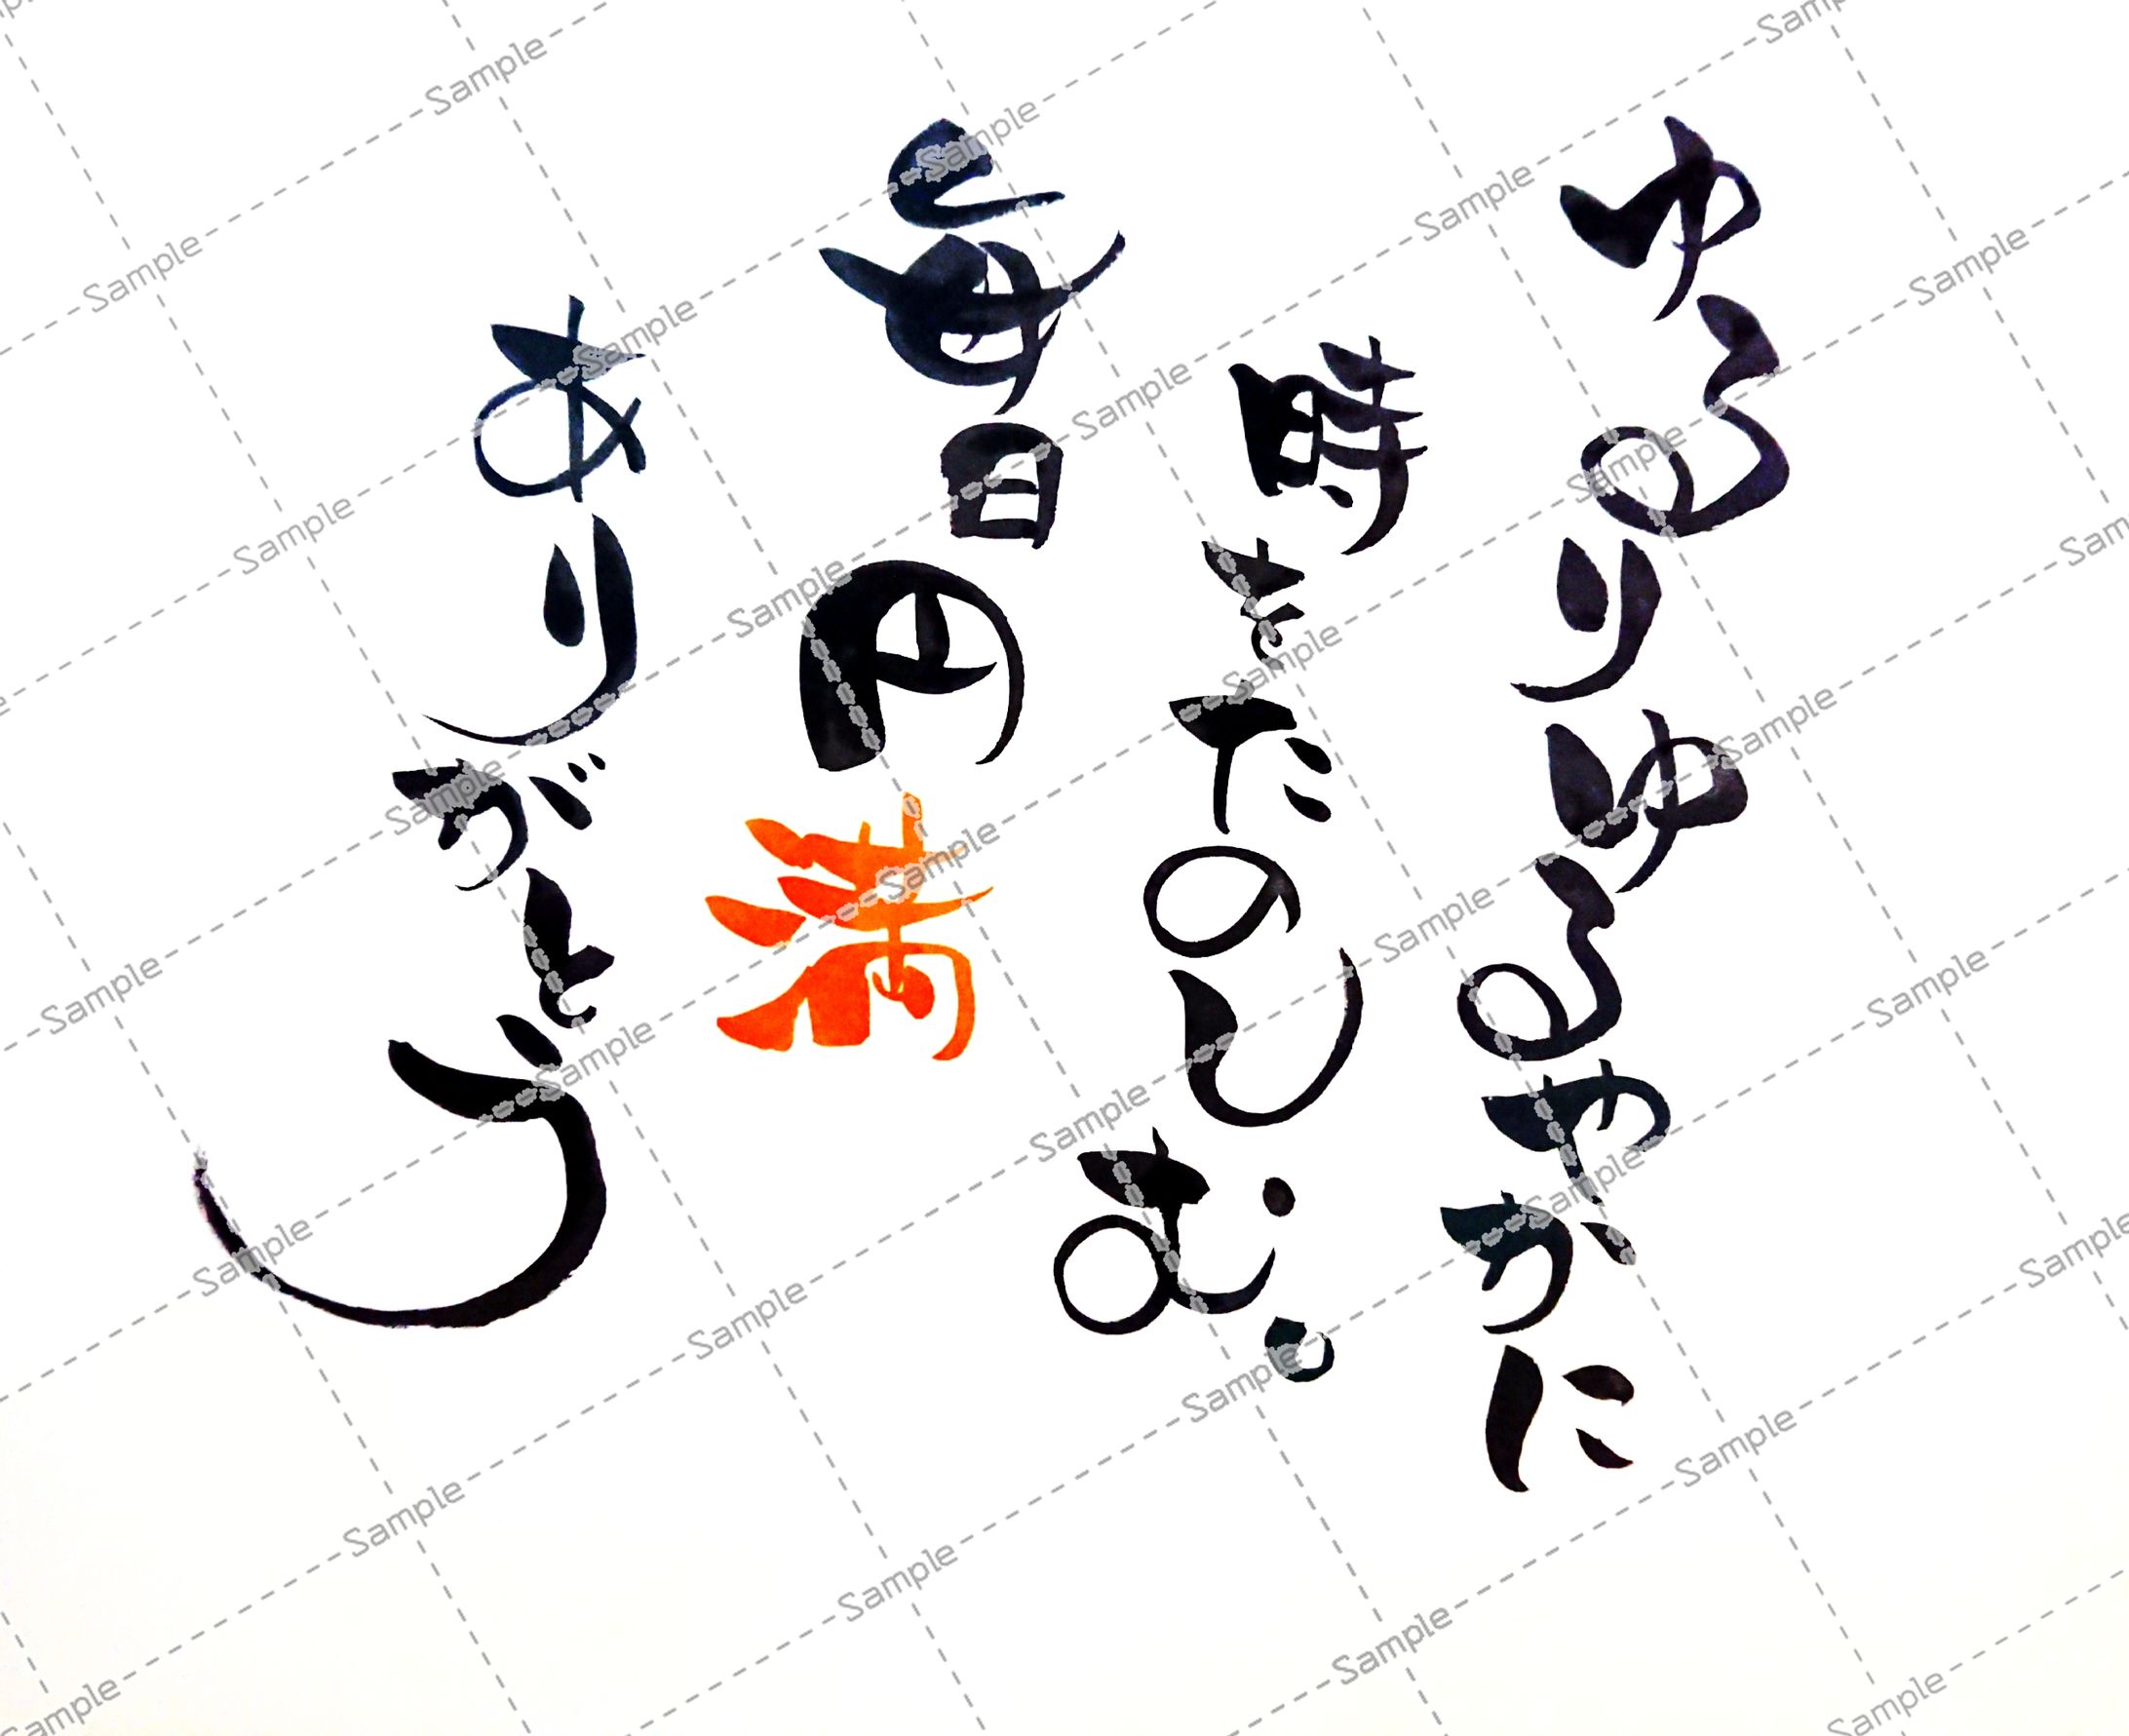 ゆるりゆるやかに
時をたのしむ。
毎日円満
ありがとう
Sample